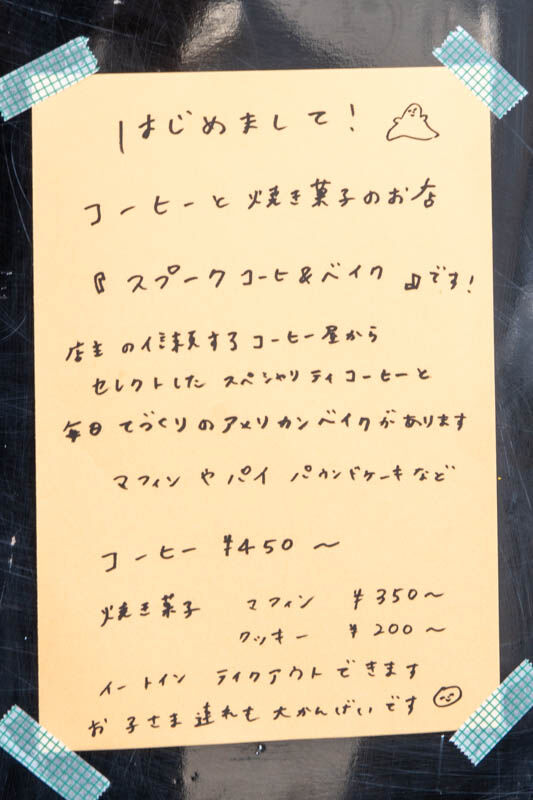 はじめまして!
コーヒーと焼き菓子のお店
『スプークコーヒ&ベイク』です!
店主の信頼するコーヒー屋から
セレクトしたスペシャリティコーヒーと
毎日てづくりのアメリカンベイクがあります
マフィンやパイ パウンドケーキなど
コーヒー ¥450〜
焼き菓子 マフィン ¥350〜
クッキー ¥200〜
イートイン テイクアウトできます
お子さま連れも大かんげいです